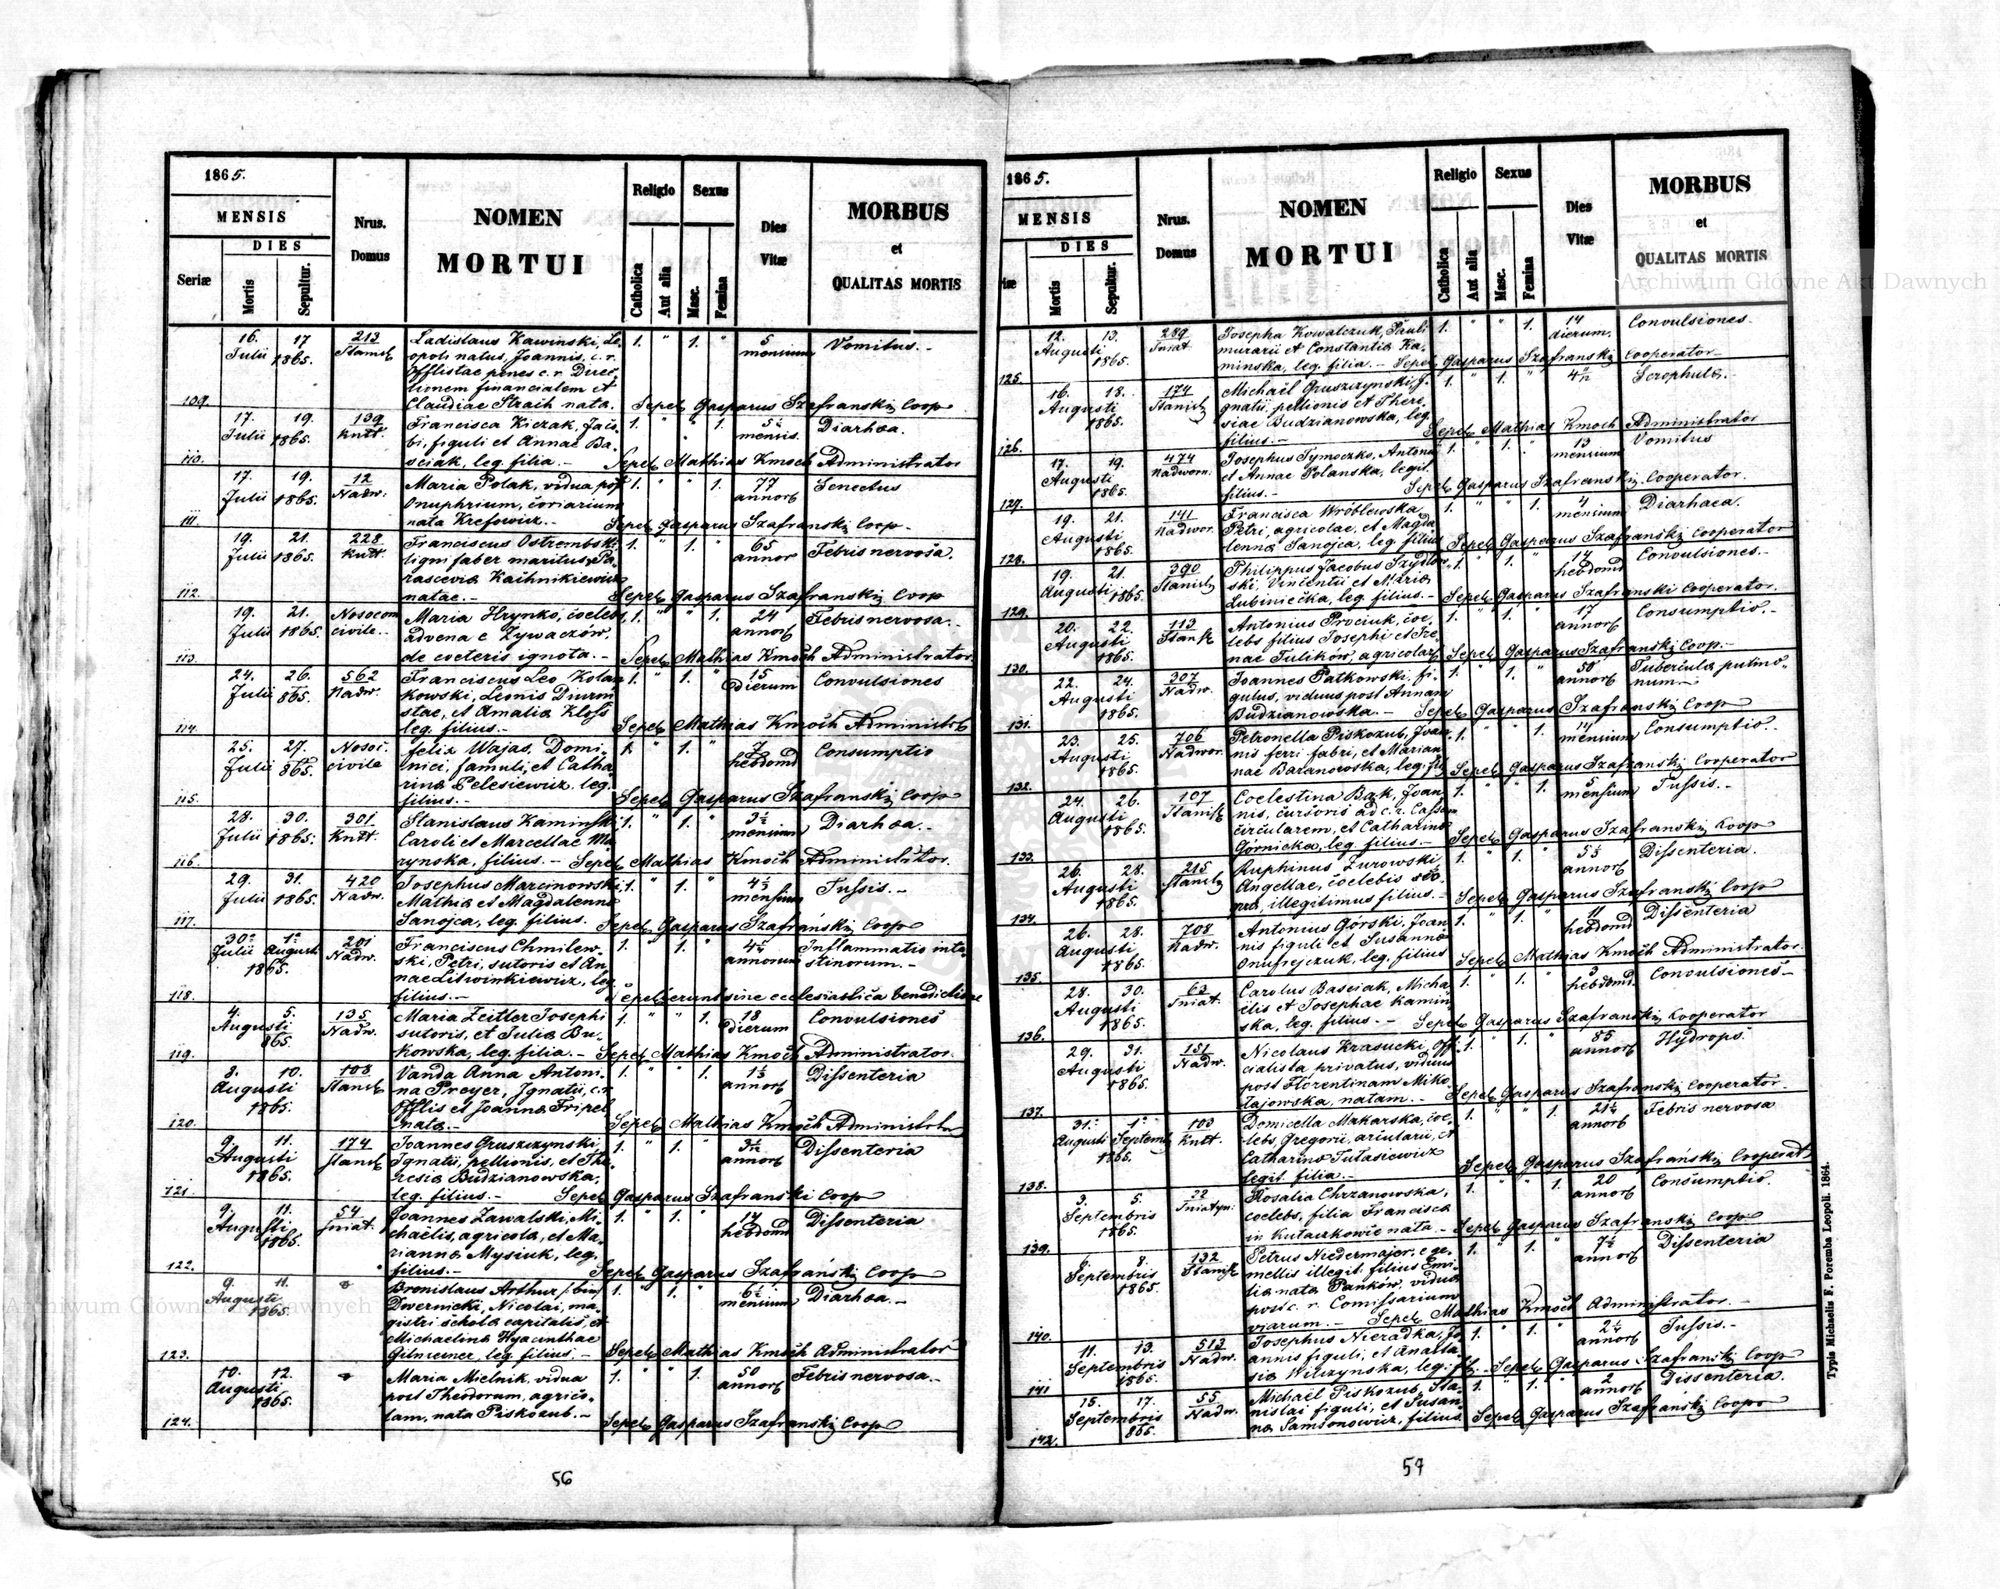 1865.
MENSIS
DIES
Seriæ
Mortis
Sepultur.
Nrus.
Domus
NOMEN
MORTUI
Religio
Catholica
Aut alia
Sexus
Masc.
Femina
Dies
Vitæ
MORBUS
et
QUALITAS MORTIS
16. 17 213 Ladislaus Kawinski, Le- 1. " 1. " 5 Vomitus.-
Julii 1865. Stanisl opoli natus, Joannis, c.r. mensium
Offlistae penes c.r. Direc-
tionem financialem et
109. Claudiae Straih nata. Sepel. Gasparus Szafranski Coop
17. 19. 139 Francisca Kiczak, Jaco- 1. " " 1. 5½ Diarhœa.
Julii 1865. Kntt. bi, figuli et Annae Ba- mensis.
110. sciak, leg. filia.- Sepel. Mathias Kmoch Administrator
17. 19. 12 Maria Polak, vidua post 1. " " 1. 77 Senectus
Julii 1865. Nadw. Onuphrium, coriarium annor
111. nata Krefowicz.- Sepel. Gasparus Szafranski Coop.
19. 21. 228 Franciscus Ostrembski 1. " 1. " 65 Febris nervosa.
Julii 1865. Kntt. ligni faber maritus Pa- annor
rascevia Kachnikiewicz
112. natae.- Sepel. Gasparus Szafranski Coop
19. 21. Nosocom Maria Hrynko, coelebs, 1. " " 1. 24 Febris nervosa.-
Julii 1865. civile.- advena e Zywaczow, annor
113. de coeteris ignota.- Sepel. Mathias Kmoch Administrator
24. 26. 562 Franciscus Leo Kolan- 1. " 1. " 15 Convulsiones
Julii 865. Nadw. kowski, Leonis Diurni- dierum
stae, et Amalia Kloss
114. leg. filius.- Sepel. Mathias Kmoch Administr
25. 27. Nosoc. Felix Wajas, Domi- 1. " 1. " 7 Consumptio
Julii 865. civile nici, famuli, et Catha- hebdomd
rina Pelesiewicz leg.
115. filius.- Sepel. Gasparus Szafranski Coop
28. 30. 301 Stanislaus Kaminski 1. " 1. " 3½ Diarhœa.-
Julii 1865. Kntt. Caroli et Marcellae Ma- mensium
116. rynska, filius.- Sepel. Mathias Kmoch Administrator.
29. 31. 420 Josephus Marcinowski 1. " 1. " 4½ Tussis.-
Julii 1865. Nadw. Mathia et Magdalenna mensium
117. Sanojca, leg. filius. Sepel. Gasparus Szafranski Coop
30 1 201 Franciscus Chmilew- 1. 1. " annorum Inflammatio inte-
Julii Augusti Nadw. ski, Petri, sutoris et An- stinorum.-
1865. nae Litwinkiewicz, leg.
118. filius.- Sepelierunt sine ecclesiastica benedictione
4. 5. 135 Maria Zeitler Josephi 1. " " 1. 18 Convulsiones
Augusti Nadw. sutoris, et Julia Bu- dierum
119. 865. kowska, leg. filia.- Sepel. Mathias Kmoch Administrator.
8. 10. 108 Vanda Anna Antoni- 1. " " 1. annor Dissenteria
Augusti Stanisl na Preyer, Ignatii, c.r.
1865. Offlis et Joanna Tripel
120. nata.- Sepel. Mathias Kmoch Administrator
9. 11. 174 Joannes Gruszczynski, 1. " 1. " annor Dissenteria
Augusti Stanisl Ignatii, pellionis, et The-
1865. resia Budzianowska,
121. leg. filius.- Sepel. Gasparus Szafranski Coop
9. 11. 54 Joannes Zawalski, Mi- 1. " 1. " 14 Dissenteria
Augusti Sniat. chaelis, agricola, et Ma- hebdomd
1865. rianna Mysiuk, leg.
122. filius.- Sepel. Gasparus Szafranski Coop
9. 11. Bronislaus Arthur /:bin:/ 1. " 1. " 6½ Diarhœa.-
Augusti Dwernicki, Nicolai, ma- mensium
1865. gistri schola capitalis, et
Michaelina Hyacinthae
123. Gilmreiner, leg. filius.- Sepel. Mathias Kmoch Administrator
10. 12. Maria Mielnik, vidua 1. " " 1. 50 Febris nervosa.-
Augusti post Theodorum, agrico- annor
124. 1865. lam, nata Piskozub.- Sepel. Gasparus Szafranski Coop
56
1865.
MENSIS
DIES
Mortis
Sepultur.
Nrus.
Domus
NOMEN
MORTUI
Religio
Catholica
Aut alia
Sexus
Masc.
Femina
Dies
Vitæ
MORBUS
et
QUALITAS MORTIS
12. 13. 289 Josepha Kowalczuk, Pauli 1. " " 1. 14 Convulsiones-
Augusti Sniat. murarii et Constantia Ka- dierum.
125. 1865. minska, leg. filia.- Sepel. Gasparus Szafranski Cooperator-
16. 18. 174 Michaël Gruszczynski, I- 1. " 1. " Scrophula.-
Augusti Stanisl gnatii, pellionis et There-
1865. siae Budzianowska, leg.
126. filius.- Sepel. Mathias Kmoch Administrator
17. 19. 474 Josephus Tymoczko, Antoni 1. " 1. " 13 Vomitus
Augusti Nadworn. et Annae Polanska, legit. mensium
127. 1865. filius.- Sepel. Gasparus Szafranski Cooperator.
19. 21. 141 Francisca Wróblewska 1. " " 1. 4 Diarhaea.
Augusti Nadwor. Petri, agricolae, et Magda- mensium
128. 1865. lenna Sanojca, leg. filius Sepel. Gasparus Szafranski Cooperator
19. 21. 390 Philippus Jacobus Szydlow- 1. " 1. " 14 Convulsiones.-
Augusti Stanisl ski, Vincentii et Maria hebdomd
129. 1865. Lubiniecka, leg. filius.- Sepel. Gasparus Szafranski Cooperator.
20. 22. 113 Antonius Prociuk, coe- 1. " 1. " 17 Consumptio.-
Augusti Stanisl lebs filius Josephi et Ire- annor
130. 1865. nae Tulików, agricolar Sepel. Gasparus Szafranski Coop.-
22. 24. 307 Joannes Patkowski, fi- 1. " 1. " 50 Tubercula pulmo-
Augusti Nadw. gulus, viduus post Annam annor num.-
131. 1865. Budzianowska.- Sepel. Gasparus Szafranski Coop
23. 25. 706 Petronella Piskozub, Joan- 1. " " 1. 14 Consumptio.-
Augusti Nadwor. nis ferri fabri, et Marian- mensium
132. 1865. nae Baranowska, leg. fla Sepel. Gasparus Szafranski Cooperator
24. 26. 107 Coelestina Bąk, Joan- 1. " " 1. 5 Tussis.-
Augusti Stanisl nis, cursoris ad c.r. Cassam mensium
1865. circularem, et Catharina
133. Górnicka, leg. filius.- Sepel. Gasparus Szafranski Coop
26. 28. 215 Ruphinus Zurowski, 1. " 1. " annor Dissenteria.
Augusti Stanisl Angellae, coelebis
134. 1865. illegitimus filius.- Sepel. Gasparus Szafranski Coop
26. 28. 708 Antonius Górski, Joan- 1. " 1. " 11 Dissenteria
Augusti Nadw. nis figuli et Susanna hebdomd
135. 1865. Onufrejczuk, leg. filius Sepel. Mathias Kmoch Administrator.
28. 30. 63 Carolus Basciak, Micha- 1. " 1. " hebdomd. Convulsiones-
Augusti Sniat. elis et Josephae Kamin-
136. 1865. ska, leg. filius.- Sepel. Gasparus Szafranski Kooperator
29. 31. 151 Nicolaus Krasucki, Offi- 1. " 1. " 85 Hydrops.
Augusti Nadw. cialista privatus, viduus annor
1865. post Florentinam Miko-
137. łajowska, natam.- Sepel. Gasparus Szafranski Cooperator.
31. 1 103 Domicella Makarska, coe- 1. " " 1. annor Febris nervosa
Augusti Septemb Kntt. lebs, Gregorii, arcularii, et
1865. Catharina Tutasiewicz
138. legit filia.- Sepel. Gasparus Szafranski Cooperat
3. 5. 22 Rosalia Chrzanowska, 1. " " 1. 20 Consumptio.
Septembris Sniatyn: coelebs, filia Francisca annor
139. 1865. in Kutaczkowie nata- Sepel. Gasparus Szafranski Coop
8. 132 Petrus Niedermajer. e ge- 1. " 1. " 7½ Dissenteria
Septembris Stanisl mellis illegit: filius Emi- annor
1865. lia nata Panków, vidua
post c.r. Comissarium
140. viarum.- Sepel. Mathias Kmoch Administrator.-
11. 13. 513 Josephus Nieradka, Jo- 1. " 1. " annor Tussis.-
Septembris Nadw. annis figuli, et Anasta-
141 1865. sia Wilczynska, leg: fls.- Sepel. Gasparus Szafranski Coop
15. 17. 55 Michaël Piskozub, Sta- 1. " 1. " 2 Dissenteria.
Septembris Nadw. nislai figuli, et Susan- annor
142. 865. na Samsonowicz, filius Sepel. Gasparus Szafranski Coop
Typis Michaelis F. Poremba Leopoli. 1864.
57
Archiwum Główne Akt Dawnych
Archiwum Główne Akt Dawnych